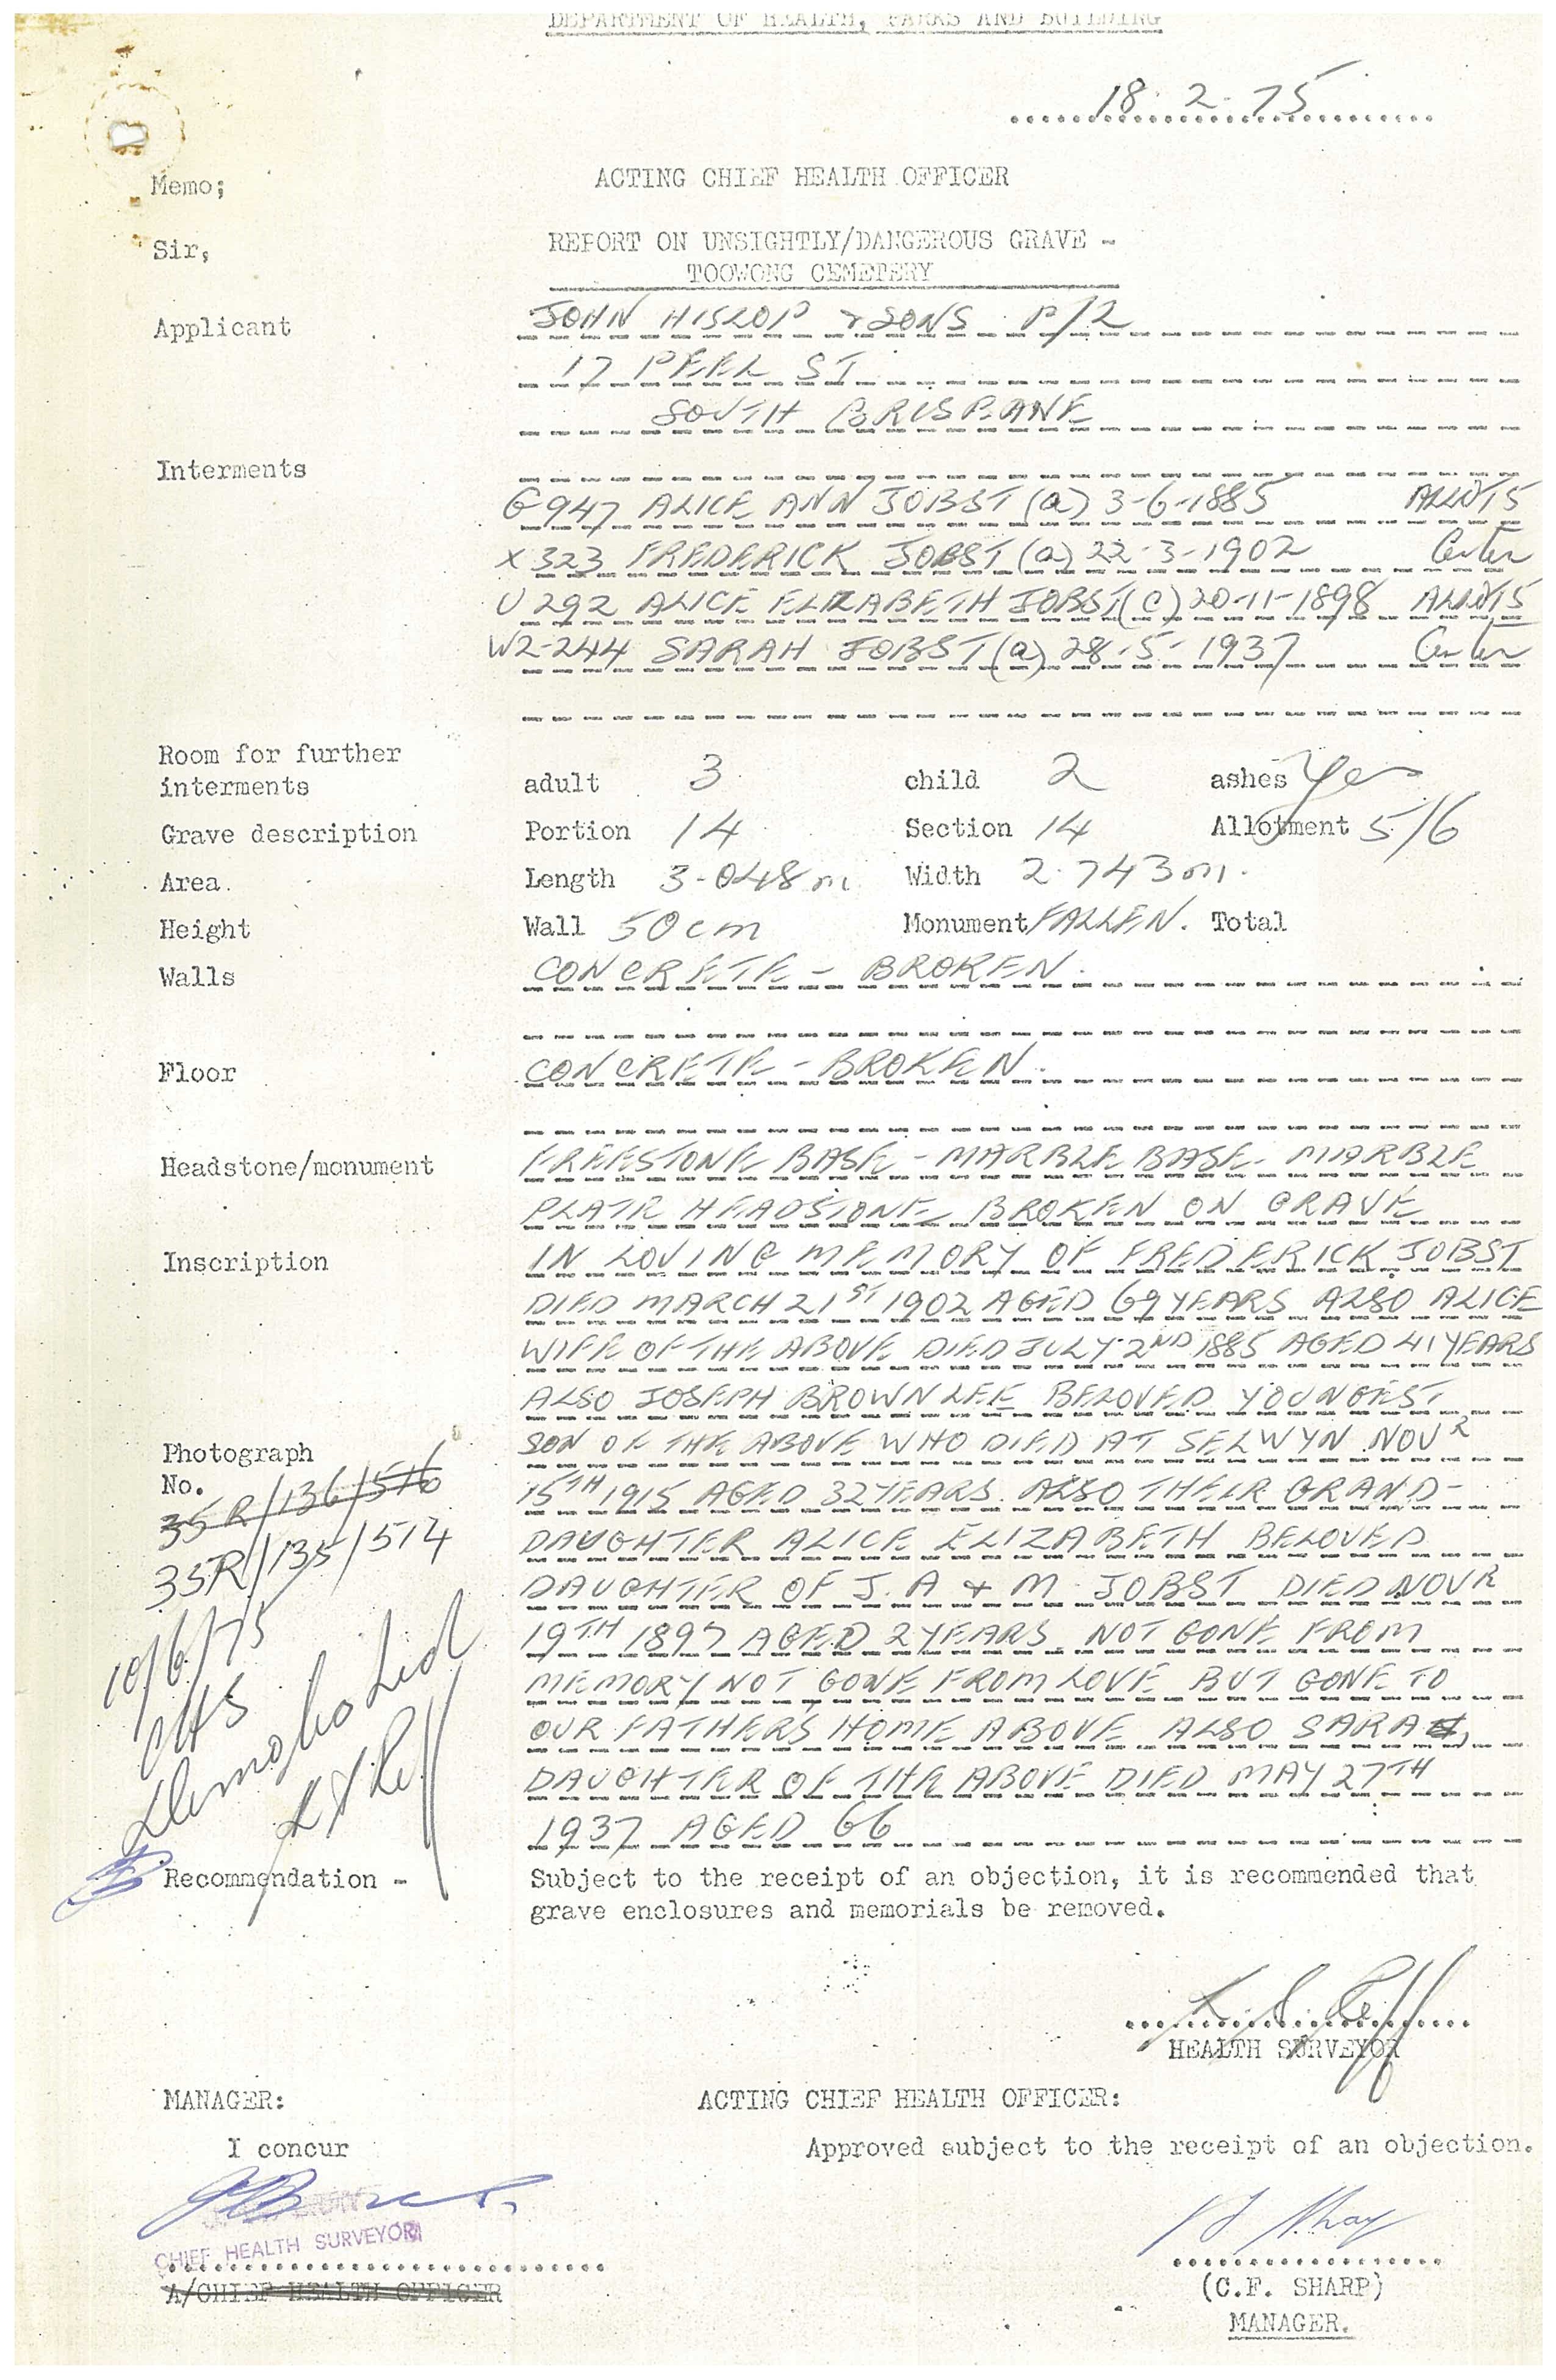 DEPARTMENT OF HEALTH, PARKS AND BUILDING
18.2.75
Memo; ACTING CHIEF HEALTH OFFICER
Sir, REPORT ON UNSIGHTLY/DANGEROUS GRAVE -
TOOWONG CEMETERY
Applicant JOHN HISLOP & SONS P/L
17 PEEL ST
SOUTH BRISBANE
Interments
G947 ALICE ANN JOBST (a) 3-6-1885 ALLOT 5
X323 FREDERICK JOBST (a) 22-3-1902 Center
U292 ALICE ELIZABETH JOBST (c) 20-11-1898 ALLOT 5
W2-244 SARAH JOBST (a) 28-5-1937 Center
Room for further
interments adult 3 child 2 ashes Yes
Grave description Portion 14 Section 14 Allotment 5/6
Area. Length 3.048m Width 2.743m.
Height Wall 50cm Monument FALLEN. Total
Walls CONCRETE - BROKEN.
Floor CONCRETE - BROKEN.
Headstone/monument FREESTONE BASE - MARBLE BASE - MARBLE
PLATE HEADSTONE BROKEN ON GRAVE
Inscription IN LOVING MEMORY OF FREDERICK JOBST
DIED MARCH 21ST 1902 AGED 69 YEARS ALSO ALICE
WIFE OF THE ABOVE DIED JULY 2ND 1885 AGED 41 YEARS
ALSO JOSEPH BROWNLEE BELOVED YOUNGEST
Photograph SON OF THE ABOVE WHO DIED AT SELWYN NOVR
No. 15TH 1915 AGED 32 YEARS. ALSO THEIR GRAND-
35R/136/516
DAUGHTER ALICE ELIZABETH BELOVED
35R/135/514
DAUGHTER OF J.A & M JOBST DIED NOVR
10/6/75 19TH 1897 AGED 2 YEARS. NOT GONE FROM
MEMORY NOT GONE FROM LOVE BUT GONE TO
CHS OUR FATHER'S HOME ABOVE ALSO SARAH,
Demolished DAUGHTER OF THE ABOVE DIED MAY 27TH
1937 AGED 66
Recommendation - Subject to the receipt of an objection, it is recommended that
grave enclosures and memorials be removed.
HEALTH SURVEYOR
MANAGER: ACTING CHIEF HEALTH OFFICER:
I concur Approved subject to the receipt of an objection.
CHIEF HEALTH SURVEYOR
A/CHIEF HEALTH OFFICER (C.F. SHARP)
MANAGER.